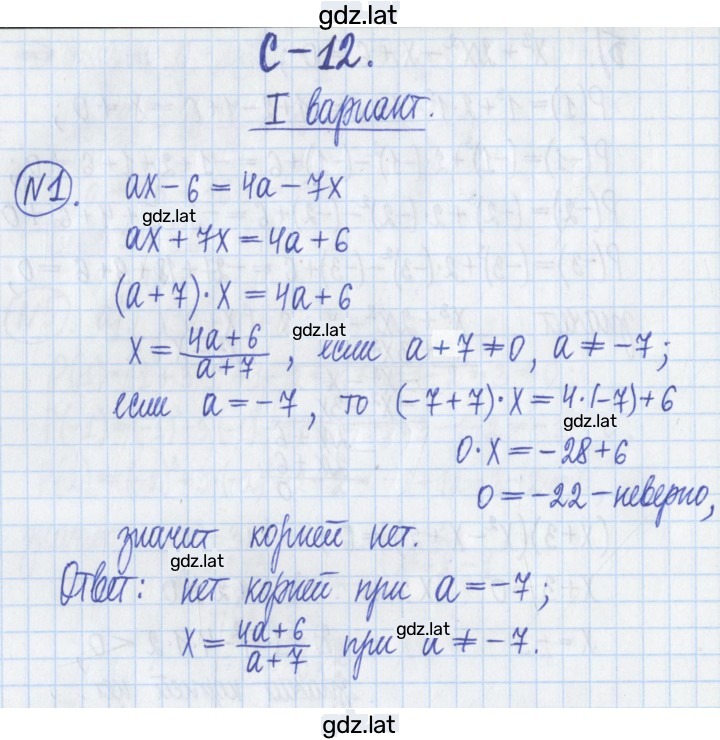 gdz.lat
С-12.
I вариант.
№1. ax - 6 = 4a - 7x
gdz.lat
ax + 7x = 4a + 6
(a + 7) · x = 4a + 6
x = \frac{4a + 6}{a + 7}, если a + 7 ≠ 0, a ≠ -7;
gdz.lat
если a = -7, то (-7 + 7) · x = 4 · (-7) + 6
gdz.lat
0 · x = -28 + 6
0 = -22 - неверно,
значит корней нет.
gdz.lat
Ответ: нет корней при a = -7;
x = \frac{4a + 6}{a + 7} при a ≠ -7.
gdz.lat
gdz.lat